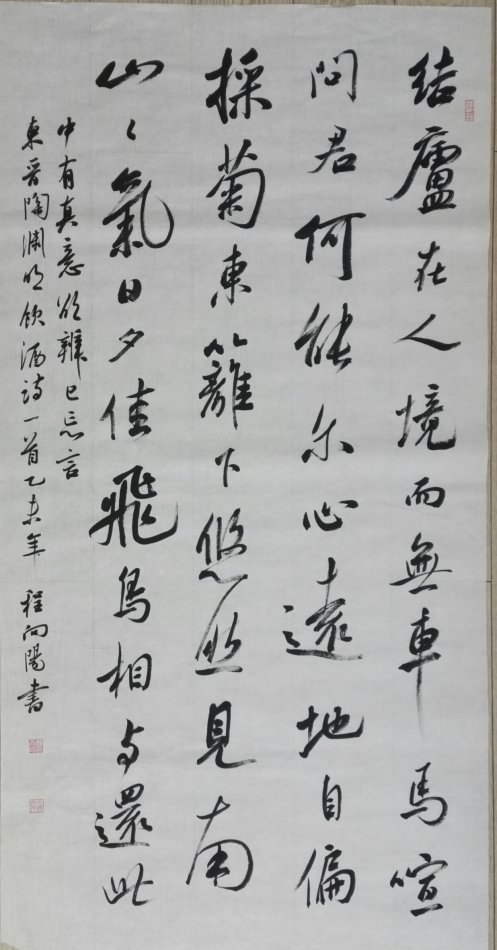 结廬在人境而無車馬喧
问君何能尔心遠地自偏
採菊東籬下悠然見南
山〻氣日夕佳飛鳥相与還此
中有真意欲辨已忘言
東晋陶渊明饮酒诗一首乙未年 程向陽書